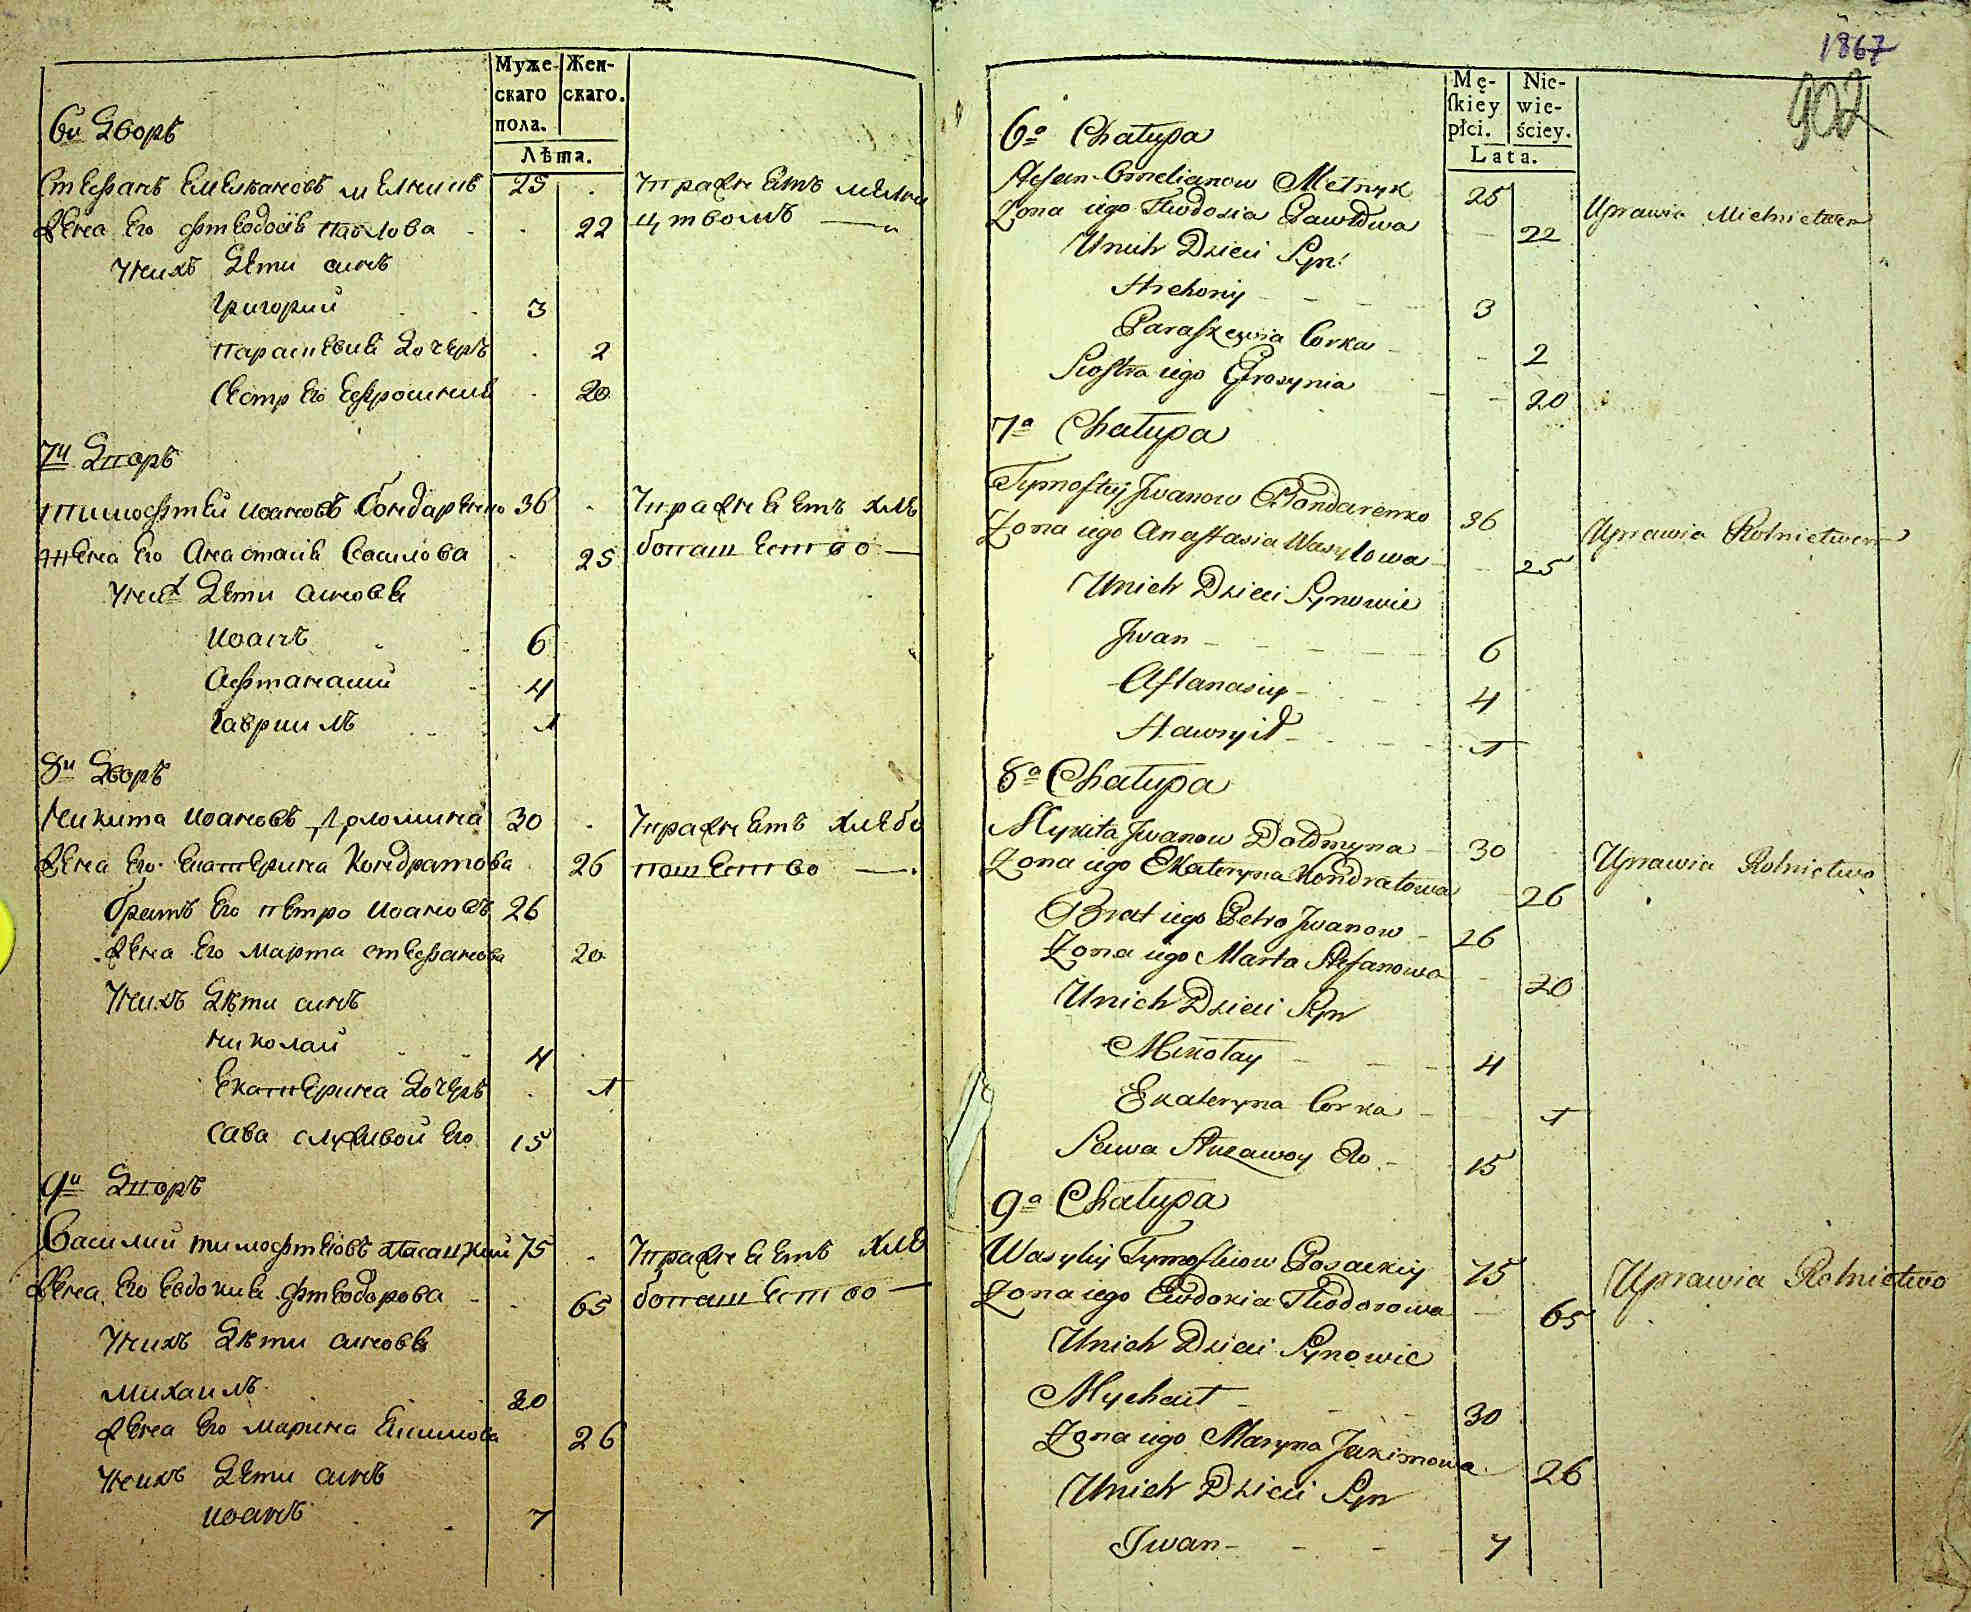 Муже- Жен-
скаго скаго.
пола.
Лѣта.
6й Дворъ
Стефанъ Емельяновъ мелникъ 25 . Упражнѣетъ мелни
Жена Его Фтеодосія Павлова . . 22 цтвомъ —
Унихъ Дѣти синъ
Григорий 3
Параскевия Дочеръ . 2
Сестр Его Ефросиния . 20
7й Дворъ
Тимофтей иоановъ Бондаренко 36 . Упражнѣетъ хлѣ
Жена Его Анастасія Василова . 25 бопашество —
Уних Дѣти синовя
иоанъ 6
Афтанаший 4
Гавриилъ 1
8й Дворъ
Никита иоановъ Доломина 30 . Упражнетъ хлебо
Жена Его Екатерина Кондратова 26 пашество —
Братъ Его Петро иоановъ 26
Жена Его Марта стефанова 20
Унихъ Дѣти синъ
николай 4
Екатерина Дочеръ . 1
Сава служивой Его 15
9й Дворъ
Василий тимофтеіовъ Пасацкий 75 . Упражнѣетъ хлѣ
Жена Его Евдокия Фтеодорова . . 65 бопашество —
Унихъ Дѣти синовя
Михаилъ 30
Жена Его Марина Якимова 26
Унихъ Дѣти синъ
иоанъ 7
1867
902
Mę- Nie-
ſkiey wie-
płci. ściey.
Lata.
6a Chałupa
Stefan Omelianow Melnyk 25 Uprawia Mielnictwem
Zona iego Tteodosia Pawłowa 22
Unich Dzieci Syn
Hrehoriy 3
Paraſkewia Corka 2
Sioſtra iego Efrosynia 20
7a Chałupa
Tymoftey Jwanow Bondarenko 36 Uprawia Rolnictwem
Zona iego Anaſtasia Wasylowa 25
Unich Dzieci Synowie
Jwan 6
Aftanasiy 4
Hawryił 1
8a Chałupa
Mykita Jwanow Dołomyna 30 Uprawia Rolnictwo
Zona iego Ekateryna Kondratowa 26
Brat iego Petro Jwanow 26
Zona iego Marta Stefanowa 20
Unich Dzieci Syn
Mikołay 4
Ekateryna Corka 1
Sawa Służawoy Eho 15
9a Chałupa
Wasyliy Tymofteiow Posackiy 75 Uprawia Rolnictwo
Zona iego Ewdokia Tteodorowa 65
Unich Dzieci Synowie
Mychaił 30
Zona iego Maryna Jakimowa 26
Unich Dzieci Syn
Jwan 7